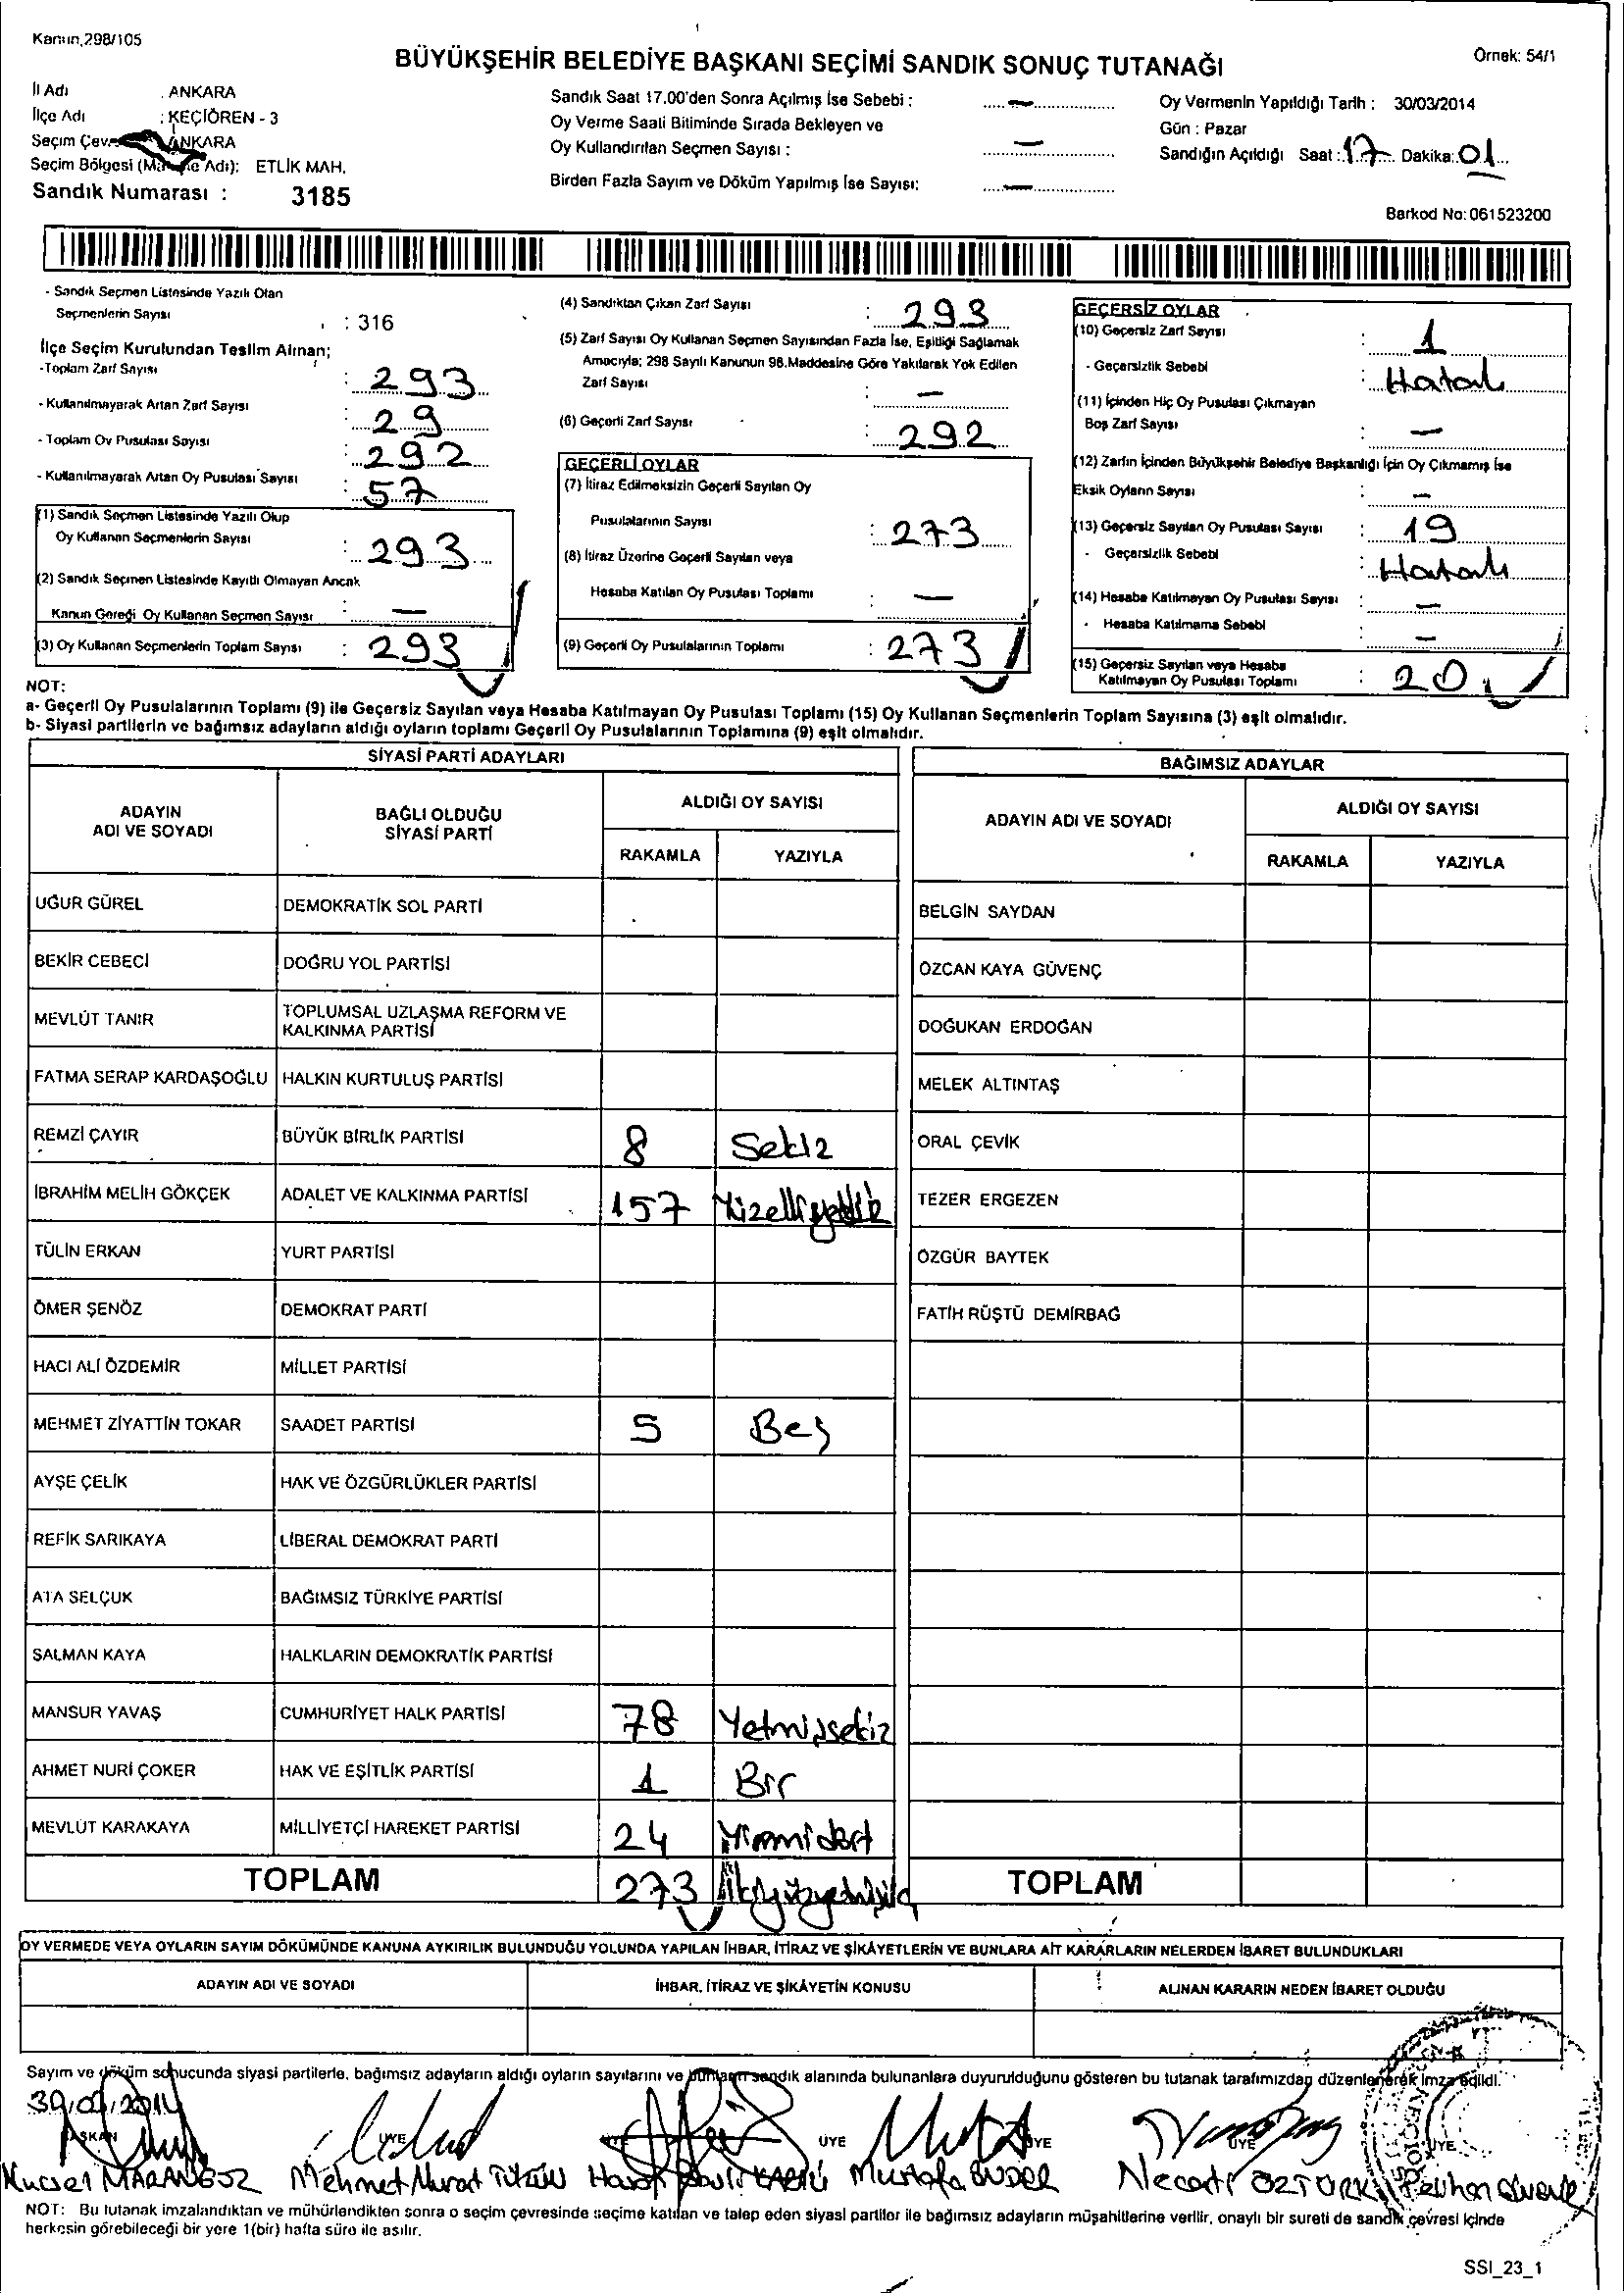 Kanun,298/105
BÜYÜKŞEHİR BELEDİYE BAŞKANI SEÇİMİ SANDIK SONUÇ TUTANAĞI
Örnek: 54/1
İl Adı : ANKARA
İlçe Adı : KEÇİÖREN - 3
Seçim Çev ANKARA
Seçim Bölgesi (Ma Adı): ETLİK MAH.
Sandık Numarası : 3185
Sandık Saat 17.00'den Sonra Açılmış İse Sebebi : —
Oy Verme Saati Bitiminde Sırada Bekleyen ve
Oy Kullandırılan Seçmen Sayısı : —
Birden Fazla Sayım ve Döküm Yapılmış İse Sayısı: —
Oy Vermenin Yapıldığı Tarih : 30/03/2014
Gün : Pazar
Sandığın Açıldığı Saat : 17 Dakika: 01
Barkod No: 061523200
- Sandık Seçmen Listesinde Yazılı Olan
Seçmenlerin Sayısı : 316
İlçe Seçim Kurulundan Teslim Alınan;
-Toplam Zarf Sayısı : 293
- Kullanılmayarak Artan Zarf Sayısı : 29
- Toplam Oy Pusulası Sayısı : 292
- Kullanılmayarak Artan Oy Pusulası Sayısı : 57
(1) Sandık Seçmen Listesinde Yazılı Olup
Oy Kullanan Seçmenlerin Sayısı : 293
(2) Sandık Seçmen Listesinde Kayıtlı Olmayan Ancak
Kanun Gereği Oy Kullanan Seçmen Sayısı : —
(3) Oy Kullanan Seçmenlerin Toplam Sayısı : 293
(4) Sandıktan Çıkan Zarf Sayısı : 293
(5) Zarf Sayısı Oy Kullanan Seçmen Sayısından Fazla İse, Eşitliği Sağlamak
Amacıyla; 298 Sayılı Kanunun 98.Maddesine Göre Yakılarak Yok Edilen
Zarf Sayısı : —
(6) Geçerli Zarf Sayısı : 292
GEÇERLİ OYLAR
(7) İtiraz Edilmeksizin Geçerli Sayılan Oy
Pusulalarının Sayısı : 273
(8) İtiraz Üzerine Geçerli Sayılan veya
Hesaba Katılan Oy Pusulası Toplamı : —
(9) Geçerli Oy Pusulalarının Toplamı : 273
GEÇERSİZ OYLAR
(10) Geçersiz Zarf Sayısı : 1
- Geçersizlik Sebebi : Hatalı
(11) İçinden Hiç Oy Pusulası Çıkmayan
Boş Zarf Sayısı : —
(12) Zarfın İçinden Büyükşehir Belediye Başkanlığı İçin Oy Çıkmamış İse
Eksik Oyların Sayısı : —
(13) Geçersiz Sayılan Oy Pusulası Sayısı : 19
- Geçersizlik Sebebi : Hatalı
(14) Hesaba Katılmayan Oy Pusulası Sayısı : —
- Hesaba Katılmama Sebebi : —
(15) Geçersiz Sayılan veya Hesaba
Katılmayan Oy Pusulası Toplamı : 20
NOT:
a- Geçerli Oy Pusulalarının Toplamı (9) ile Geçersiz Sayılan veya Hesaba Katılmayan Oy Pusulası Toplamı (15) Oy Kullanan Seçmenlerin Toplam Sayısına (3) eşit olmalıdır.
b- Siyasi partilerin ve bağımsız adayların aldığı oyların toplamı Geçerli Oy Pusulalarının Toplamına (9) eşit olmalıdır.
SİYASİ PARTİ ADAYLARI
ADAYIN ADI VE SOYADI
BAĞLI OLDUĞU SİYASİ PARTİ
ALDIĞI OY SAYISI
RAKAMLA YAZIYLA
UĞUR GÜREL DEMOKRATİK SOL PARTİ
BEKİR CEBECİ DOĞRU YOL PARTİSİ
MEVLÜT TANIR TOPLUMSAL UZLAŞMA REFORM VE
KALKINMA PARTİSİ
FATMA SERAP KARDAŞOĞLU HALKIN KURTULUŞ PARTİSİ
REMZİ ÇAYIR BÜYÜK BİRLİK PARTİSİ 8 Sekiz
İBRAHİM MELİH GÖKÇEK ADALET VE KALKINMA PARTİSİ 157
TÜLİN ERKAN YURT PARTİSİ
ÖMER ŞENÖZ DEMOKRAT PARTİ
HACI ALİ ÖZDEMİR MİLLET PARTİSİ
MEHMET ZİYATTİN TOKAR SAADET PARTİSİ 5 Beş
AYŞE ÇELİK HAK VE ÖZGÜRLÜKLER PARTİSİ
REFİK SARIKAYA LİBERAL DEMOKRAT PARTİ
ATA SELÇUK BAĞIMSIZ TÜRKİYE PARTİSİ
SALMAN KAYA HALKLARIN DEMOKRATİK PARTİSİ
MANSUR YAVAŞ CUMHURİYET HALK PARTİSİ 78 Yetmişsekiz
AHMET NURİ ÇOKER HAK VE EŞİTLİK PARTİSİ 1 Bir
MEVLÜT KARAKAYA MİLLİYETÇİ HAREKET PARTİSİ 24 Yirmidört
TOPLAM 273
BAĞIMSIZ ADAYLAR
ADAYIN ADI VE SOYADI
ALDIĞI OY SAYISI
RAKAMLA YAZIYLA
BELGİN SAYDAN
ÖZCAN KAYA GÜVENÇ
DOĞUKAN ERDOĞAN
MELEK ALTINTAŞ
ORAL ÇEVİK
TEZER ERGEZEN
ÖZGÜR BAYTEK
FATİH RÜŞTÜ DEMİRBAĞ
TOPLAM
OY VERMEDE VEYA OYLARIN SAYIM DÖKÜMÜNDE KANUNA AYKIRILIK BULUNDUĞU YOLUNDA YAPILAN İHBAR, İTİRAZ VE ŞİKÂYETLERİN VE BUNLARA AİT KARARLARIN NELERDEN İBARET BULUNDUKLARI
ADAYIN ADI VE SOYADI
İHBAR, İTİRAZ VE ŞİKÂYETİN KONUSU
ALINAN KARARIN NEDEN İBARET OLDUĞU
Sayım ve döküm sonucunda siyasi partilerle, bağımsız adayların aldığı oyların sayılarını ve bunların sandık alanında bulunanlara duyurulduğunu gösteren bu tutanak tarafımızdan düzenlenerek imza edildi.
BAŞKAN ÜYE ÜYE ÜYE ÜYE ÜYE
Mehmet Murat Mustafa Necati ÖZTÜRK
NOT: Bu tutanak imzalandıktan ve mühürlendikten sonra o seçim çevresinde seçime katılan ve talep eden siyasi partiler ile bağımsız adayların müşahitlerine verilir, onaylı bir sureti de sandık çevresi içinde
herkesin görebileceği bir yere 1(bir) hafta süre ile asılır.
SSI_23_1